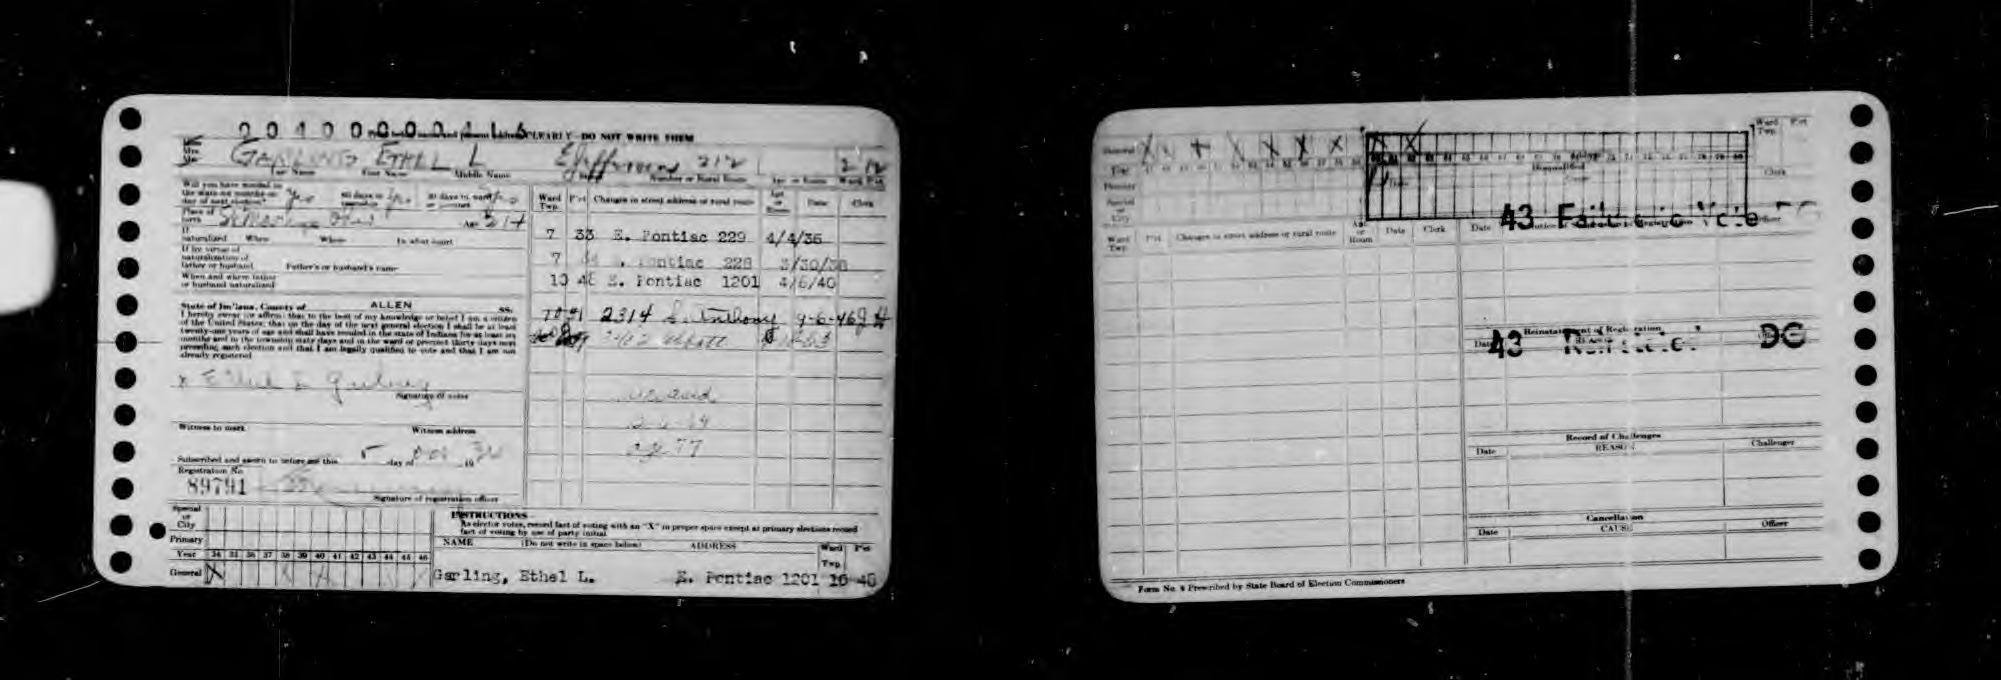 2 0 4 0 0 0 0 0 4 1 5 CLEARLY—DO NOT WRITE THEM
Mrs. GARLING ETHEL L E Jefferson 212 2 12
Last Name First Name Middle Name Street Number or Rural Route Apt. or Room Ward Pct.
Will you have resided in the state six months on day of next election? Yes 60 days in township Yes 30 days in ward or precinct Yes
Place of birth St Marys Ohio Age 21+
If naturalized When Where In what court
If by virtue of naturalization of father or husband Father's or husband's name
When and where father or husband naturalized
Ward Twp. Pct. Changes in street address or rural route Apt. or Room Date Clerk
7 33 E. Pontiac 229 4/4/36
7 E. Pontiac 228 3/30/38
10 48 E. Pontiac 1201 4/6/40
10 91 2314 S. Anthony 9-6-46
3402 Abbott
State of Indiana, County of ALLEN SS.
I hereby swear (or affirm) that to the best of my knowledge or belief I am a citizen
of the United States; that on the day of the next general election I shall be at least
twenty-one years of age and shall have resided in the state of Indiana for at least six
months and in the township sixty days and in the ward or precinct thirty days next
preceding such election and that I am legally qualified to vote and that I am not
already registered
x Ethel L Garling
Signature of voter
age 77
Witness to mark Witness address
Subscribed and sworn to before me this 5 day of Oct 19 34
Registration No.
89791
Signature of registration officer
Special or City
Primary
Year 34 35 36 37 38 39 40 41 42 43 44 45 46
General X
INSTRUCTIONS
As elector votes, record fact of voting with an "X" in proper space except at primary elections record
fact of voting by use of party initial
NAME (Do not write in space below) ADDRESS Ward Twp. Pct.
Garling, Ethel L. E. Pontiac 1201 10 48
General X X X X X X X X X
Year 47 48 49 50 51 52 53 54 55 56 57 58 59 60 61 62 63 64 65 66 67 68 69 70 71 72 73 74 75 76 77 78 79 80
Primary
Special or City
Ward Twp. Pct.
Disqualified
Date Cause Clerk
43 Failure to Vote DG
Ward Twp. Pct. Changes in street address or rural route Apt. or Room Date Clerk Date Officer
Reinstatement of Registration
43 Reinstated DG
Record of Challenges
Date REASON Challenger
Cancellation
Date CAUSE Officer
Form No. 8 Prescribed by State Board of Election Commissioners